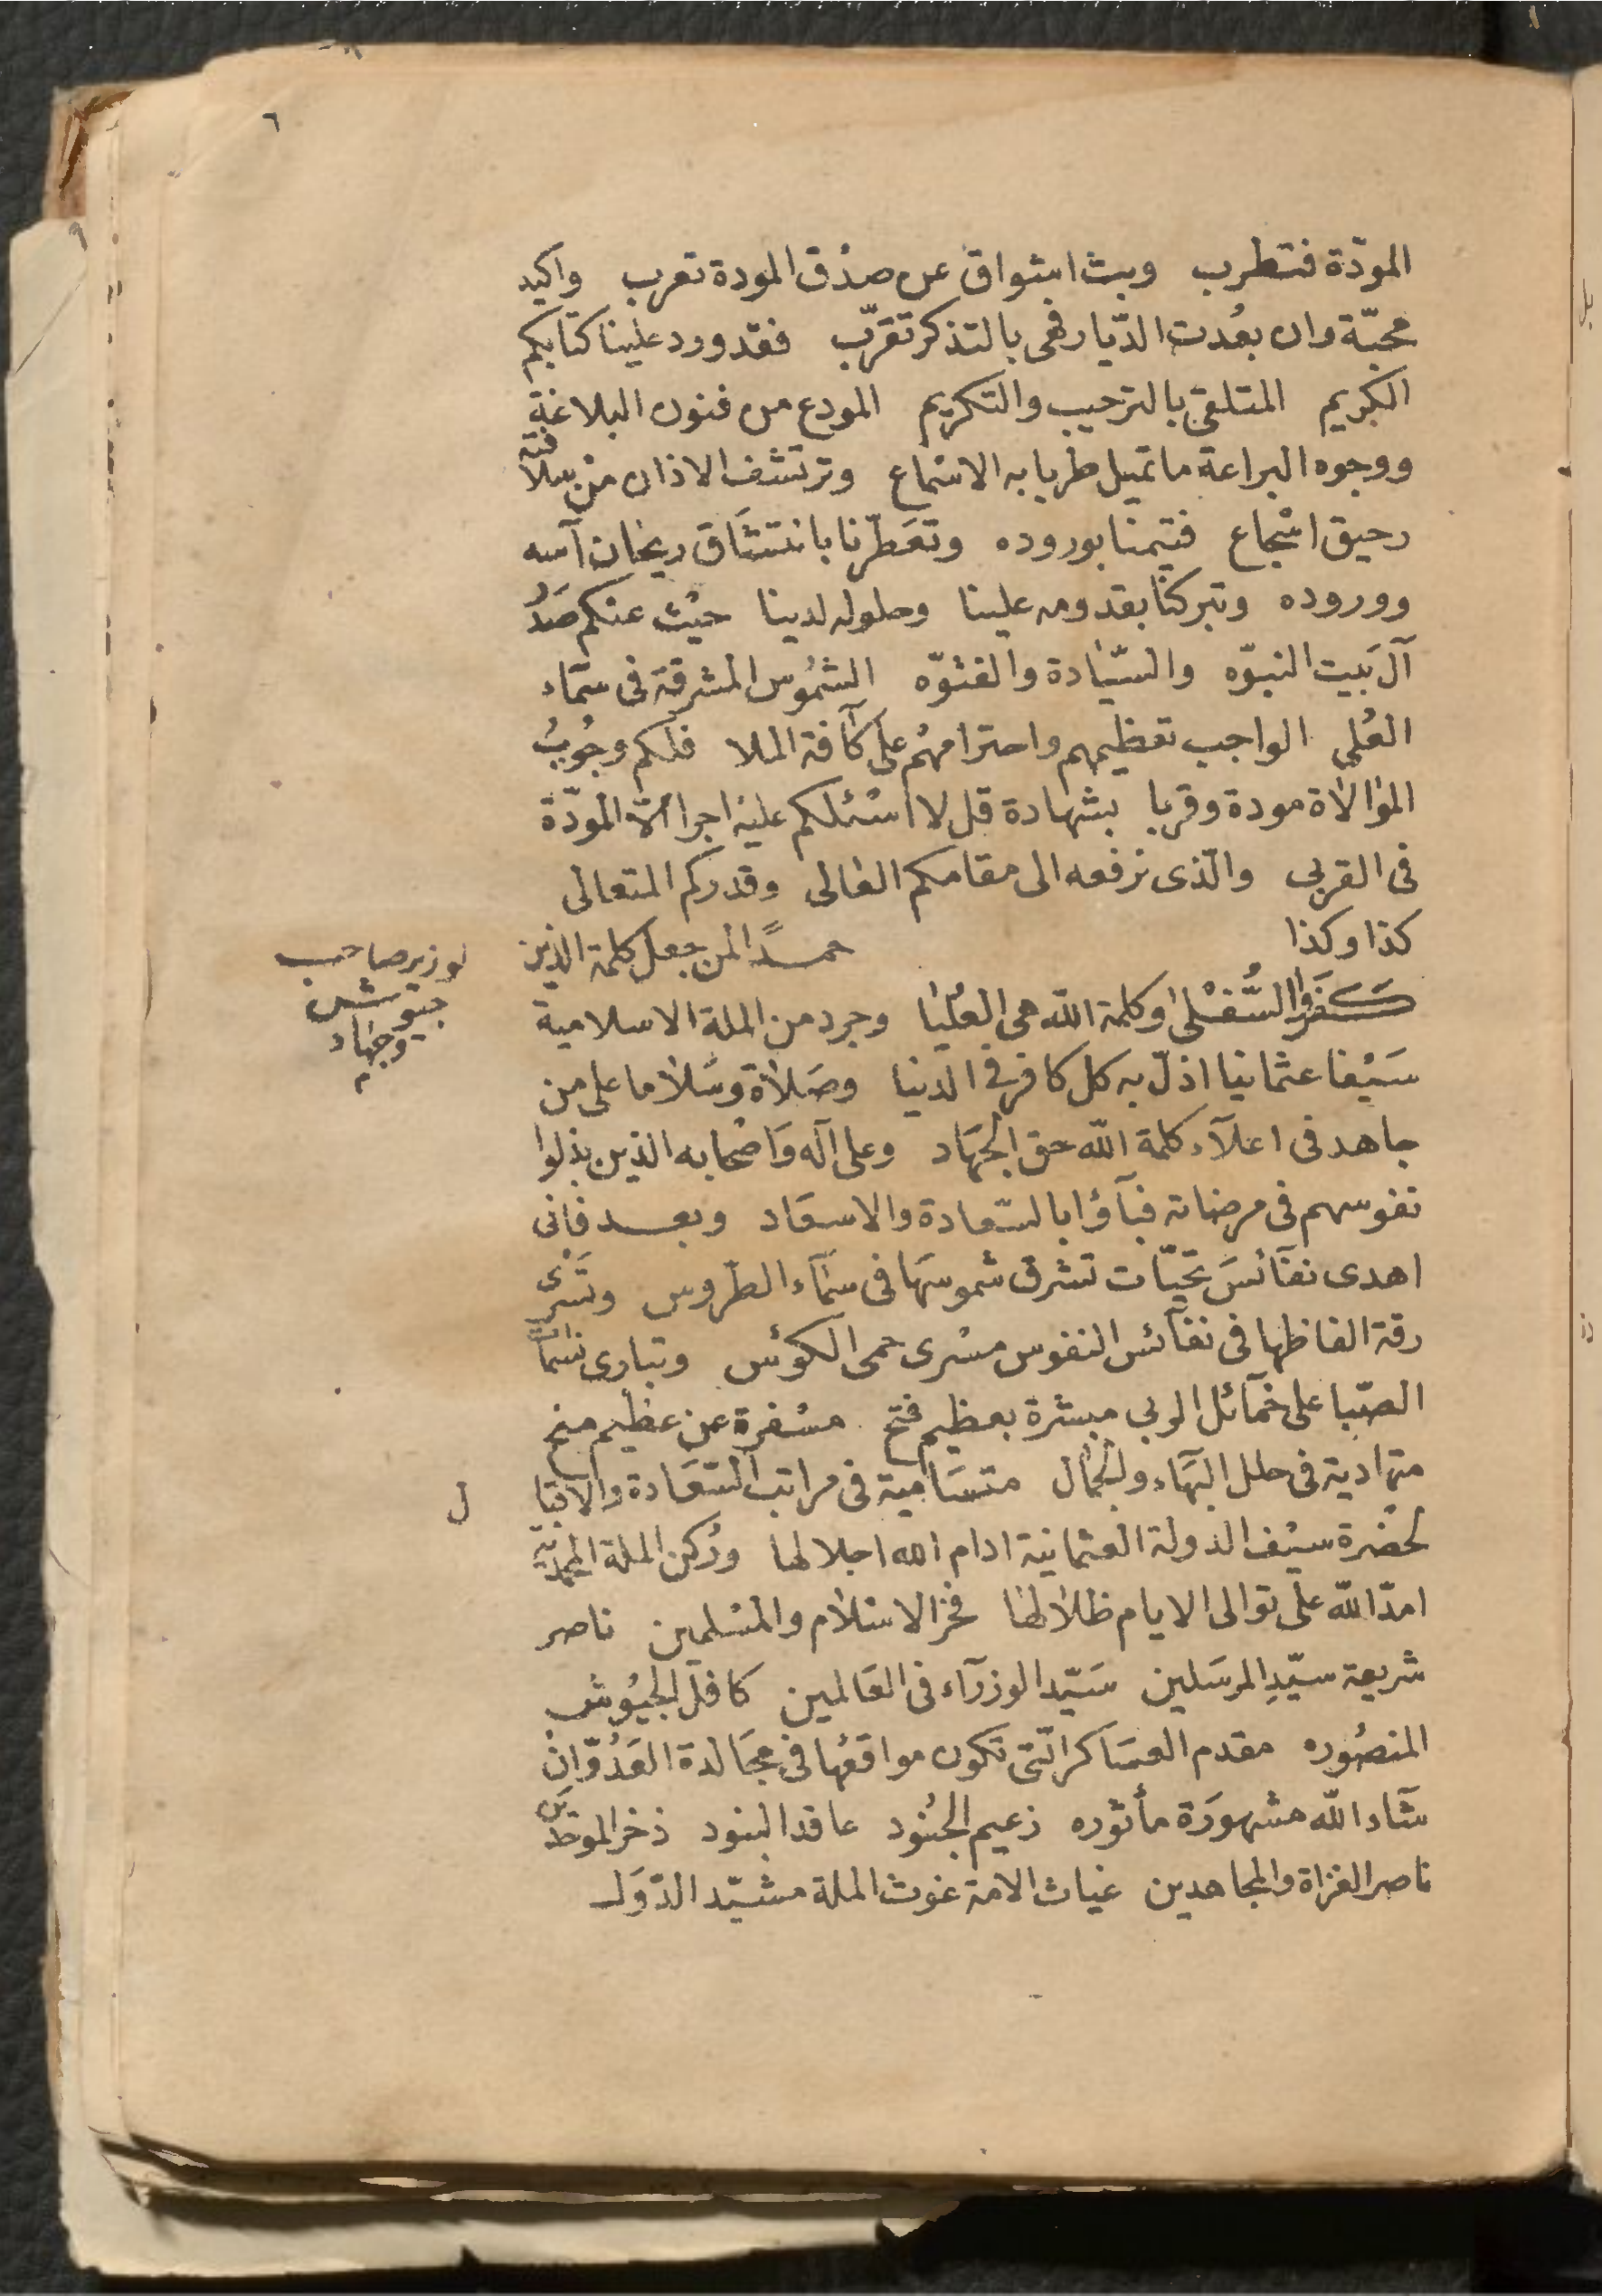 ٦
المودّة فتطرب وبث اشواق عن صدق المودة تعرب واكيد
محبّة وان بعُدت الدّيار فهى بالتذكر تقرّب فقد ورد علينا كتابكم
الكريم المتلقى بالترحيب والتكريم المودع من فنون البلاغة
ووجوه البراعة ما تميل طربا به الاسماع وترتشف الاذان من سلافته
رحيق اسجاع فتيمنا بوروده وتعَطّرنا بانتشَاق ريحان آسه
ووروده وتبركنا بقدومه علينا وحلوله لدينا حيْث عنكم صَدُر
آل بَيت النبوّه والسّيَادة والفتوّه الشمُوس المشرقة فى سمَاء
العُلى الواجب تعظيمهم واحترامهُم على كآفة الملا فلكم وجُوبُ
الموالاة مودة وقربا بشهادة قل لا اسئلكم عليه اجرا الّا المودّة
فى القربى والّذى نرفعه الى مقامكم العالى وقدركم المتعالى
كذا وكذا حمــدًا لمن جعل كلمة الذين
لوزير صاحب
جيوش
وجهاد
كَــفَرُوا السُّفْلى وكلمة الله هى العُليا وجرد من الملة الاسلامية
سَيْفا عثمانيا اذلّ به كل كافر فى الدنيا وصَلاة وسَلاما على من
جاهد فى اعلآء كلمة الله حق الجهَاد وعلى آله وَاصْحابه الذين بذلوا
نفوسهم فى مرضاته فبآؤا بالسّعادة والاسعَاد وبعــد فانى
اهدى نفآئسَ تحيّات تشرق شموسهَا فى سمَآء الطروس وتَسْرى
رقة الفاظها فى نفآئس النفوس مسْرى حمى الكؤس وتبارى نسَمات
الصّبا على خمآئل الربى مبشرة بعظيم فتح مسْفرة عن عظيم منح
متهادية فى حلل البهَاء والجمال متسَامية فى مراتب السّعَادة والاقبا ل
لحضْرة سيْف الدولة العثمانية ادام الله اجلالها ورُكن الملة المحمديّة
امدّ الله على توالى الايام ظلالهَا فخر الاسلام والمسْلمين ناصر
شريعة سيّدِ المرسَلين سَيّد الوزرآء فى العَالمين كافل الجيُوش
المنصُوره مقدم العسَاكر الّتى تكون مواقعُها فى مجَالدة العَدُوّ ان
شآء الله مشهورَة مأثوره زعيم الجنُود عاقد البنود ذخر الموحدّين
ناصر الغزاة والمجاهدين غياث الامة غوث الملة مشيّد الدّوَل